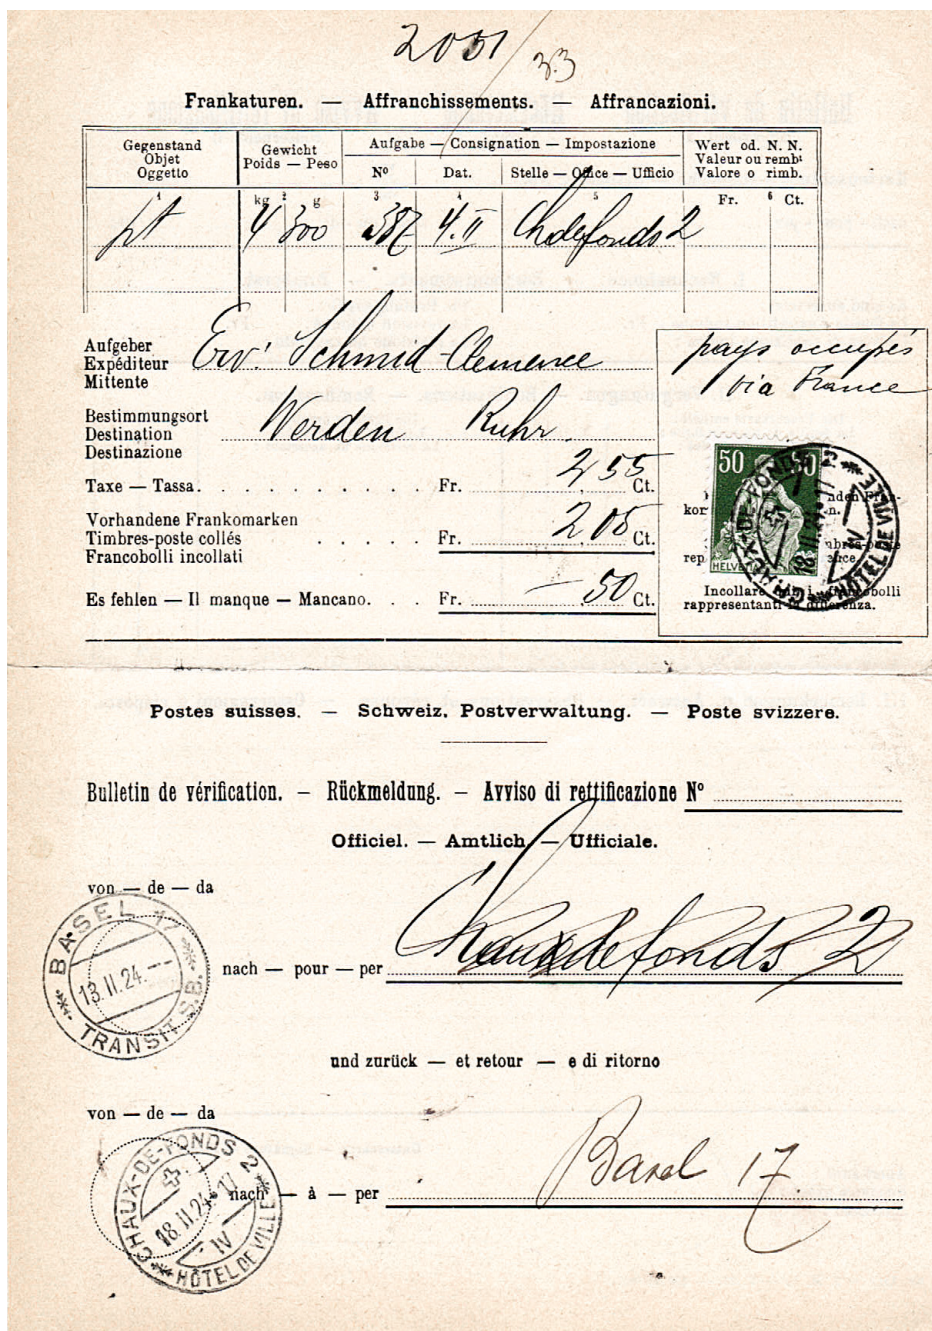 2051/33
Frankaturen. — Affranchissements. — Affrancazioni.
Gegenstand
Objet
Oggetto
Gewicht
Poids — Peso
Aufgabe — Consignation — Impostazione
Nº
Dat.
Stelle — Office — Ufficio
Wert od. N. N.
Valeur ou rembt
Valore o rimb.
1
kg 2 g
3
4
5
Fr. 6 Ct.
pt 4 300 387 4.II Chdefonds 2
Aufgeber
Expéditeur
Mittente
Erv. Schmid-Clemence
pays occupés
via France
Bestimmungsort
Destination
Destinazione
Werden Ruhr.
Taxe — Tassa. Fr. 2,55 Ct.
Vorhandene Frankomarken
Timbres-poste collés
Francobolli incollati
Fr. 2,05 Ct.
Es fehlen — Il manque — Mancano. Fr. —50 Ct.
50 50
HELVETIA
CHAUX-DE-FONDS 2
18.II.24.-17
IV
HÔTEL DE VILLE
Incollare i francobolli
rappresentanti la differenza.
Postes suisses. — Schweiz. Postverwaltung. — Poste svizzere.
Bulletin de vérification. — Rückmeldung. — Avviso di rettificazione Nº
Officiel. — Amtlich. — Ufficiale.
von — de — da
BASEL 17
13.II.24.--
TRANSIT S.B.
nach — pour — per Chauxdefonds 2
und zurück — et retour — e di ritorno
von — de — da
CHAUX-DE-FONDS 2
18.II.24.-17
IV
HÔTEL DE VILLE
nach — à — per Basel 17